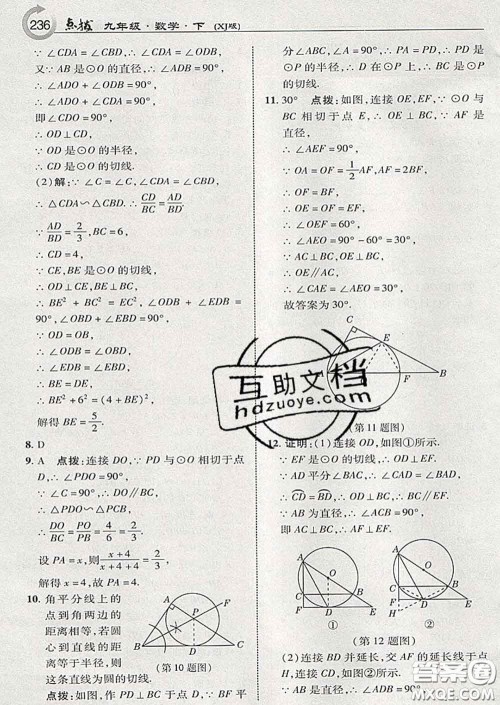 236 点拨 九年级·数学·下 (XJ版)
∵ ∠CDA = ∠CBD, ∴ ∠ADO = ∠CBD.
又∵ AB 是⊙O 的直径, ∴ ∠ADB = 90°.
∴ ∠ADO + ∠ODB = 90°.
∴ ∠ADO + ∠CDA = 90°,
即∠CDO = 90°.
∴ OD⊥CD.
∵ OD 是⊙O 的半径,
∴ CD 是⊙O 的切线.
(2)解: ∵ ∠C = ∠C, ∠CDA = ∠CBD,
∴ △CDA∽△CBD. ∴ CD/BC = AD/BD.
∵ AD/BD = 2/3, BC = 6,
∴ CD = 4.
∵ CE, BE 是⊙O 的切线,
∴ BE = DE, BE⊥BC.
∴ BE² + BC² = EC², ∠ODB + ∠BDE = 90°, ∠OBD + ∠EBD = 90°.
∵ OD = OB,
∴ ∠ODB = ∠OBD,
∴ ∠BDE = ∠EBD,
∴ BE = DE,
∴ BE² + 6² = (4 + BE)²,
解得 BE = 5/2.
8. D
9. A 点拨: 连接 DO, ∵ PD 与⊙O 相切于点 D, ∴ ∠PDO = 90°,
∵ ∠C = 90°, ∴ DO∥BC,
∴ △PDO∽△PCB,
∴ DO/BC = PO/PB = 4/6 = 2/3,
设 PA = x, 则 (x+4)/(x+4+4) = 2/3,
解得 x = 4, 故 PA = 4.
10. 角平分线上的
点到角两边的
距离相等; 若圆
心到直线的距
离等于半径, 则
这条直线为圆的切线.
(第 10 题图)
点拨: 如图, 作 PD⊥BC 于点 D, ∵ BF 平
分∠ABC, ∠A = 90°, ∴ PA = PD, ∴ PD 是⊙P 的半径, ∴ D 在⊙P 上, ∴ BC 是⊙P 的切线.
11. 30° 点拨: 如图, 连接 OE, EF, ∵ ⊙O 与
BC 相切于点 E, ∴ OE⊥BC, ∵ AF 是
直径,
∴ ∠AEF = 90°,
∵ OA = OF = 1/2 AF, AF = 2BF,
∴ OF = BF.
∴ EF = OF = OE,
∴ ∠EOF = ∠OEF = 60°,
∴ ∠AEO = 90° - 60° = 30°.
∵ AC⊥BC,
∴ OE∥AC,
∴ ∠CAE = ∠AEO = 30°,
故答案为 30°.
C E A O F B
(第 11 题图)
12. 证明: (1) 连接 OD, 如图①所示.
∵ AD 平分∠CAB,
∴ CD = BD, ∴ OD⊥BC.
∵ AB 为直径, ∴ ∠ACB = 90°,
即 AC⊥BC, ∴ AC∥OD.
① ②
(第 12 题图)
(2) 连接 BD 并延长, 交 AF 的延长线于点
H, 连接 CD, 如图②所示.
∵ AB 为直径,
互助文档
hdzuoye.com
答案圈
MXQE.COM